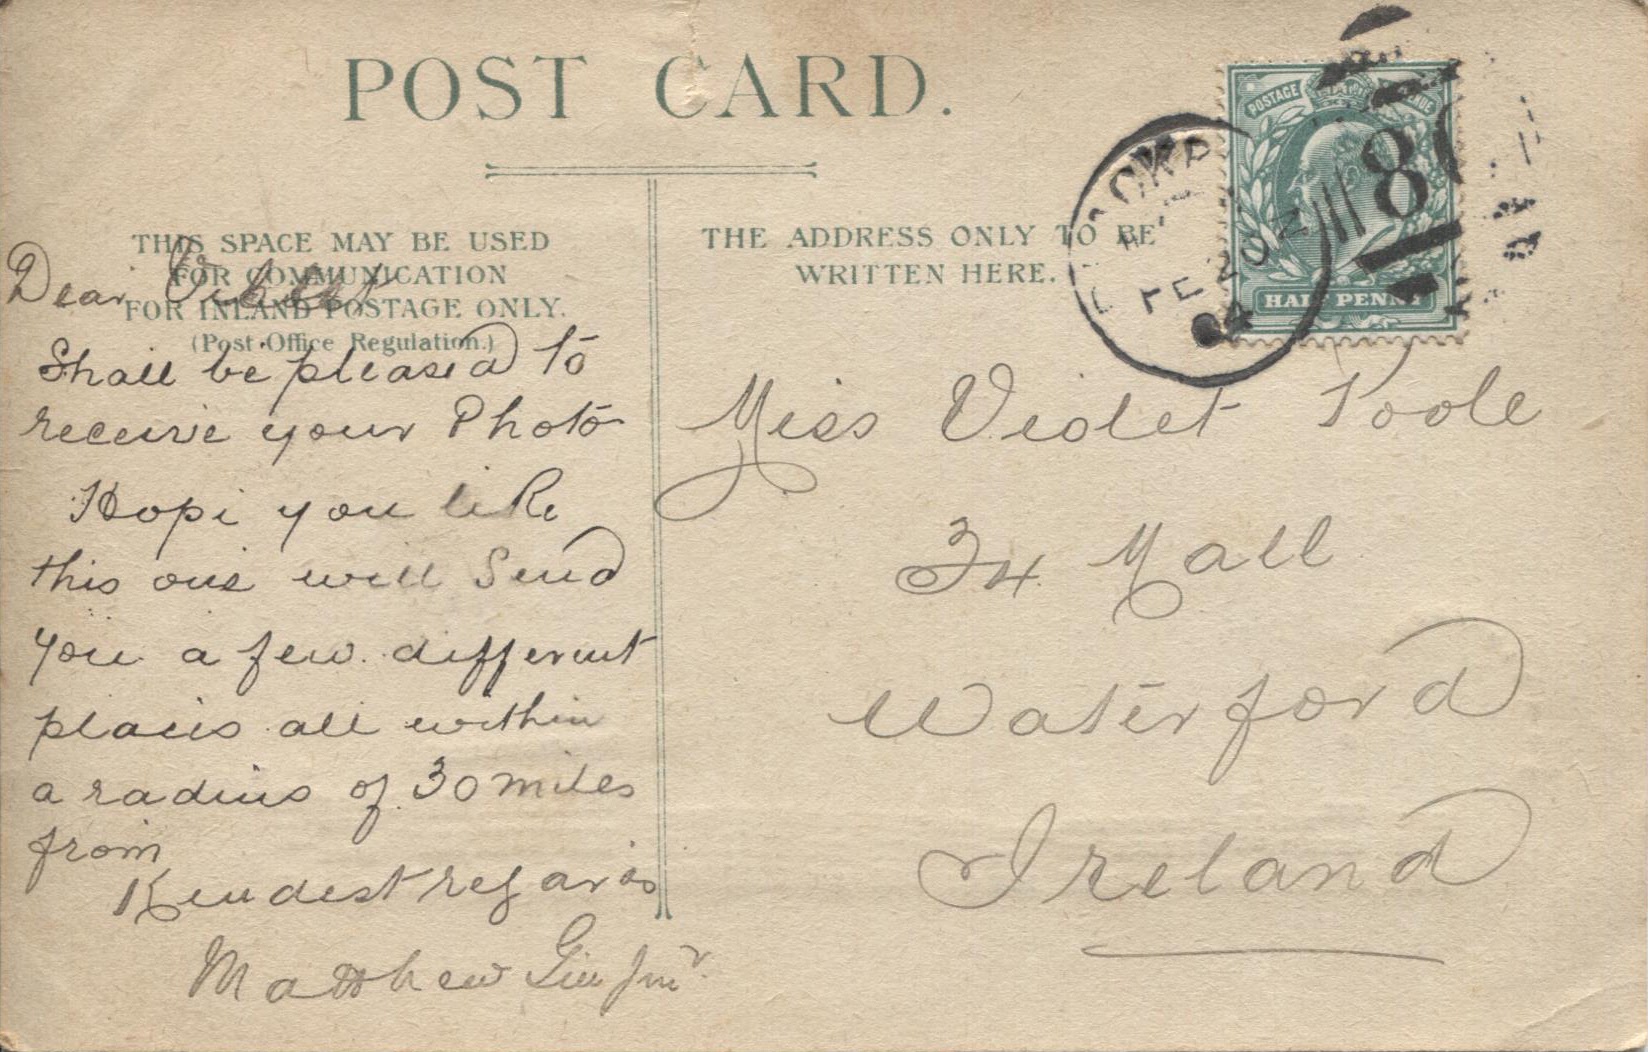 POST CARD.
THIS SPACE MAY BE USED
FOR COMMUNICATION
FOR INLAND POSTAGE ONLY.
(Post Office Regulation.)
Dear Violet
Shall be pleased to
receive your Photo
Hope you like
this one will Send
you a few different
places all within
a radius of 30 miles
from
Kindest regards
Matthew Jnr
THE ADDRESS ONLY TO BE
WRITTEN HERE.
POSTAGE
HALF PENNY
FE 20
04
8
Miss Violet Poole
34 Mall
Waterford
Ireland